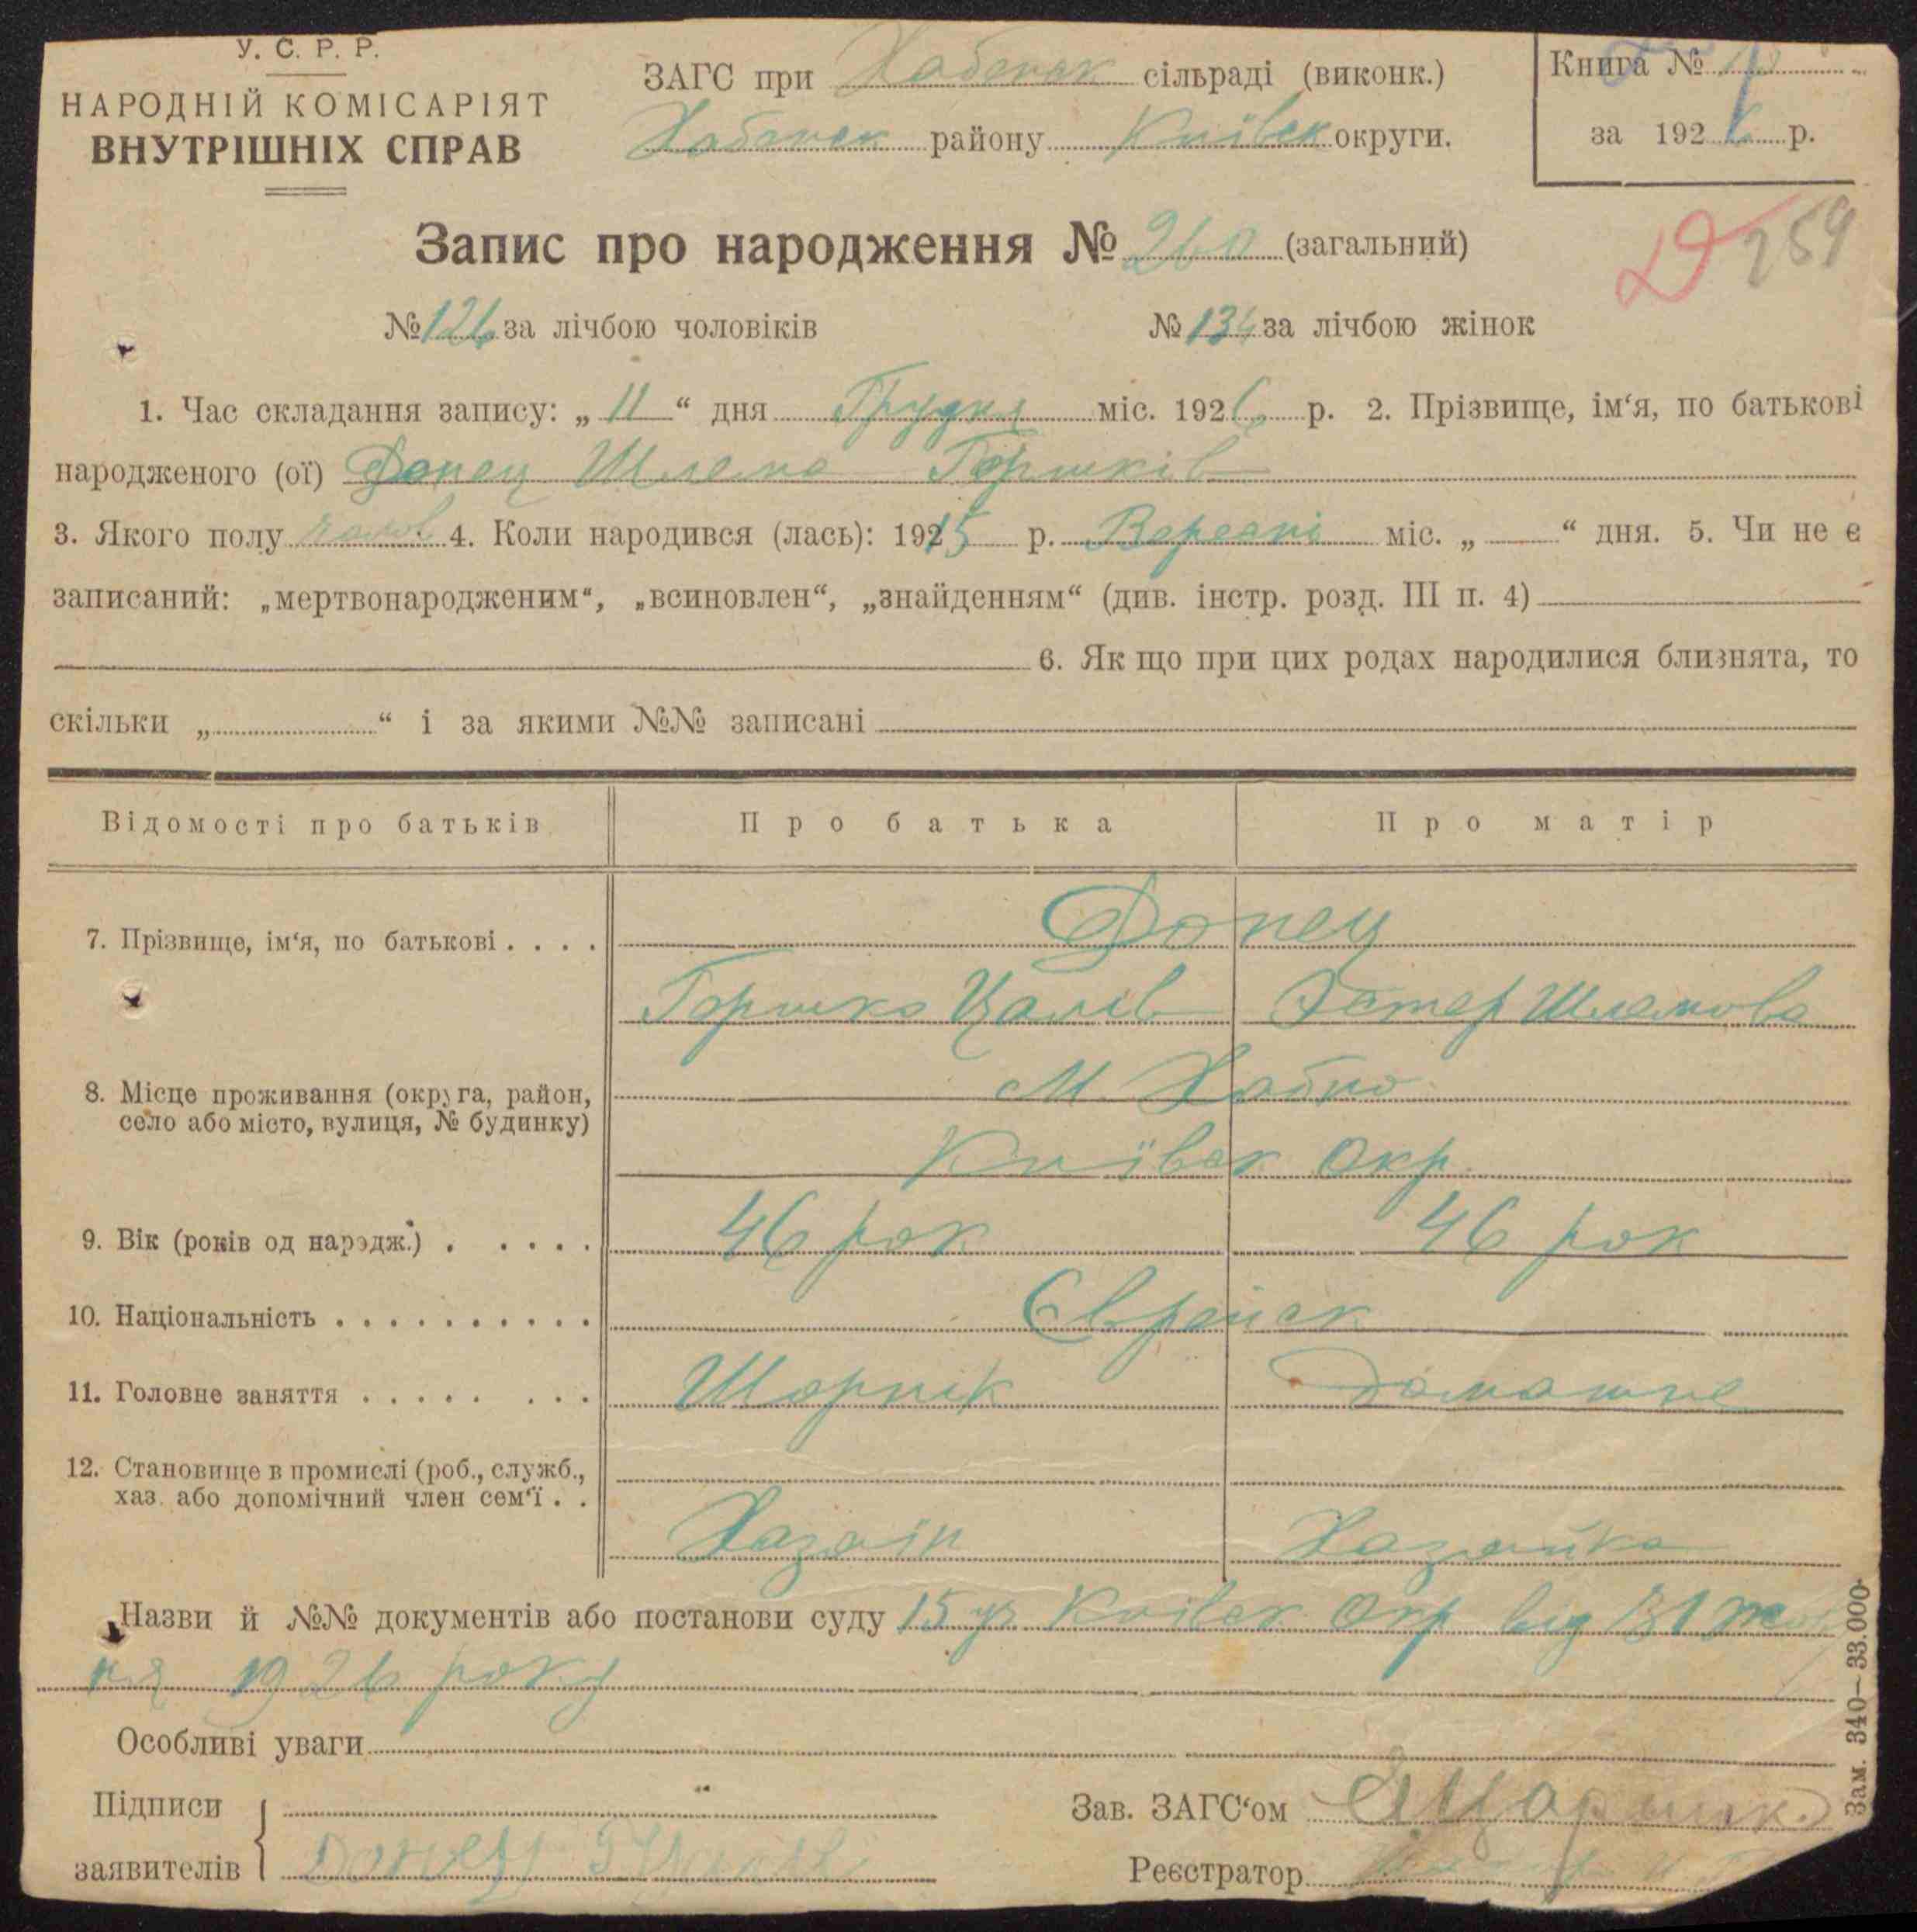 У. С. Р. Р.
НАРОДНІЙ КОМІСАРІЯТ
ВНУТРІШНІХ СПРАВ
ЗАГС при Хабенск сільраді (виконк.)
Хабенск району Київск округи.
Книга №
за 1926 р.
Запис про народження № 260 (загальний)
259
№ 126 за лічбою чоловіків № 134 за лічбою жінок
1. Час складання запису: „ 11 “ дня Грудня міс. 1926 р. 2. Прізвище, ім‘я, по батькові
народженого (ої) Донец Шлема Горшків
3. Якого полу чолов 4. Коли народився (лась): 1915 р. Вересні міс. „ — “ дня. 5. Чи не є
записаний: „мертвонародженим“, „всиновлен“, „знайденням“ (див. інстр. розд. III п. 4)
6. Як що при цих родах народилися близнята, то
скільки „ “ і за якими №№ записані
Відомості про батьків Про батька Про матір
7. Прізвище, ім‘я, по батькові . . . . Донец
Горшко Цалів Эстер Шлемова
8. Місце проживання (округа, район,
село або місто, вулиця, № будинку)
М. Хабно
Київск Окр.
9. Вік (років од народж.) . . . . . 46 рок 46 рок
10. Національність . . . . . . . . . . Єврейск
11. Головне заняття . . . . . . . . Шорнік Домашне
12. Становище в промислі (роб., служб.,
хаз. або допомічний член сем‘ї . .
Хазяїн Хазяйка
Назви й №№ документів або постанови суду 15 Київск Окр від 31 жов
ня 1926 року
Особливі уваги
Підписи
заявителів
Зав. ЗАГС‘ом
Реєстратор
Зам. 340—33.000